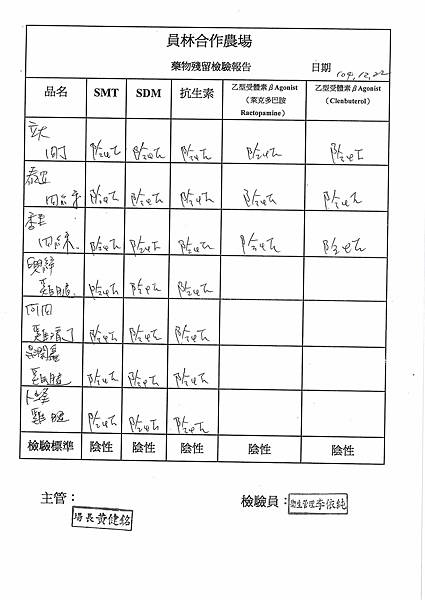 員林合作農場
藥物殘留檢驗報告
日期 104.12.22
品名 SMT SDM 抗生素 乙型受體素βAgonist (萊克多巴胺 Ractopamine) 乙型受體素βAgonist (Clenbuterol)
立大
肉丁 陰性 陰性 陰性 陰性 陰性
泰安
肉絲 陰性 陰性 陰性 陰性 陰性
肉絲 陰性 陰性 陰性 陰性 陰性
雞腿 陰性 陰性 陰性
雞清丁 陰性 陰性 陰性
雞腿 陰性 陰性 陰性
卜蜂
雞腿 陰性 陰性 陰性
檢驗標準 陰性 陰性 陰性 陰性 陰性
主管：
場長黃健銘
檢驗員：
衛生管理李依純